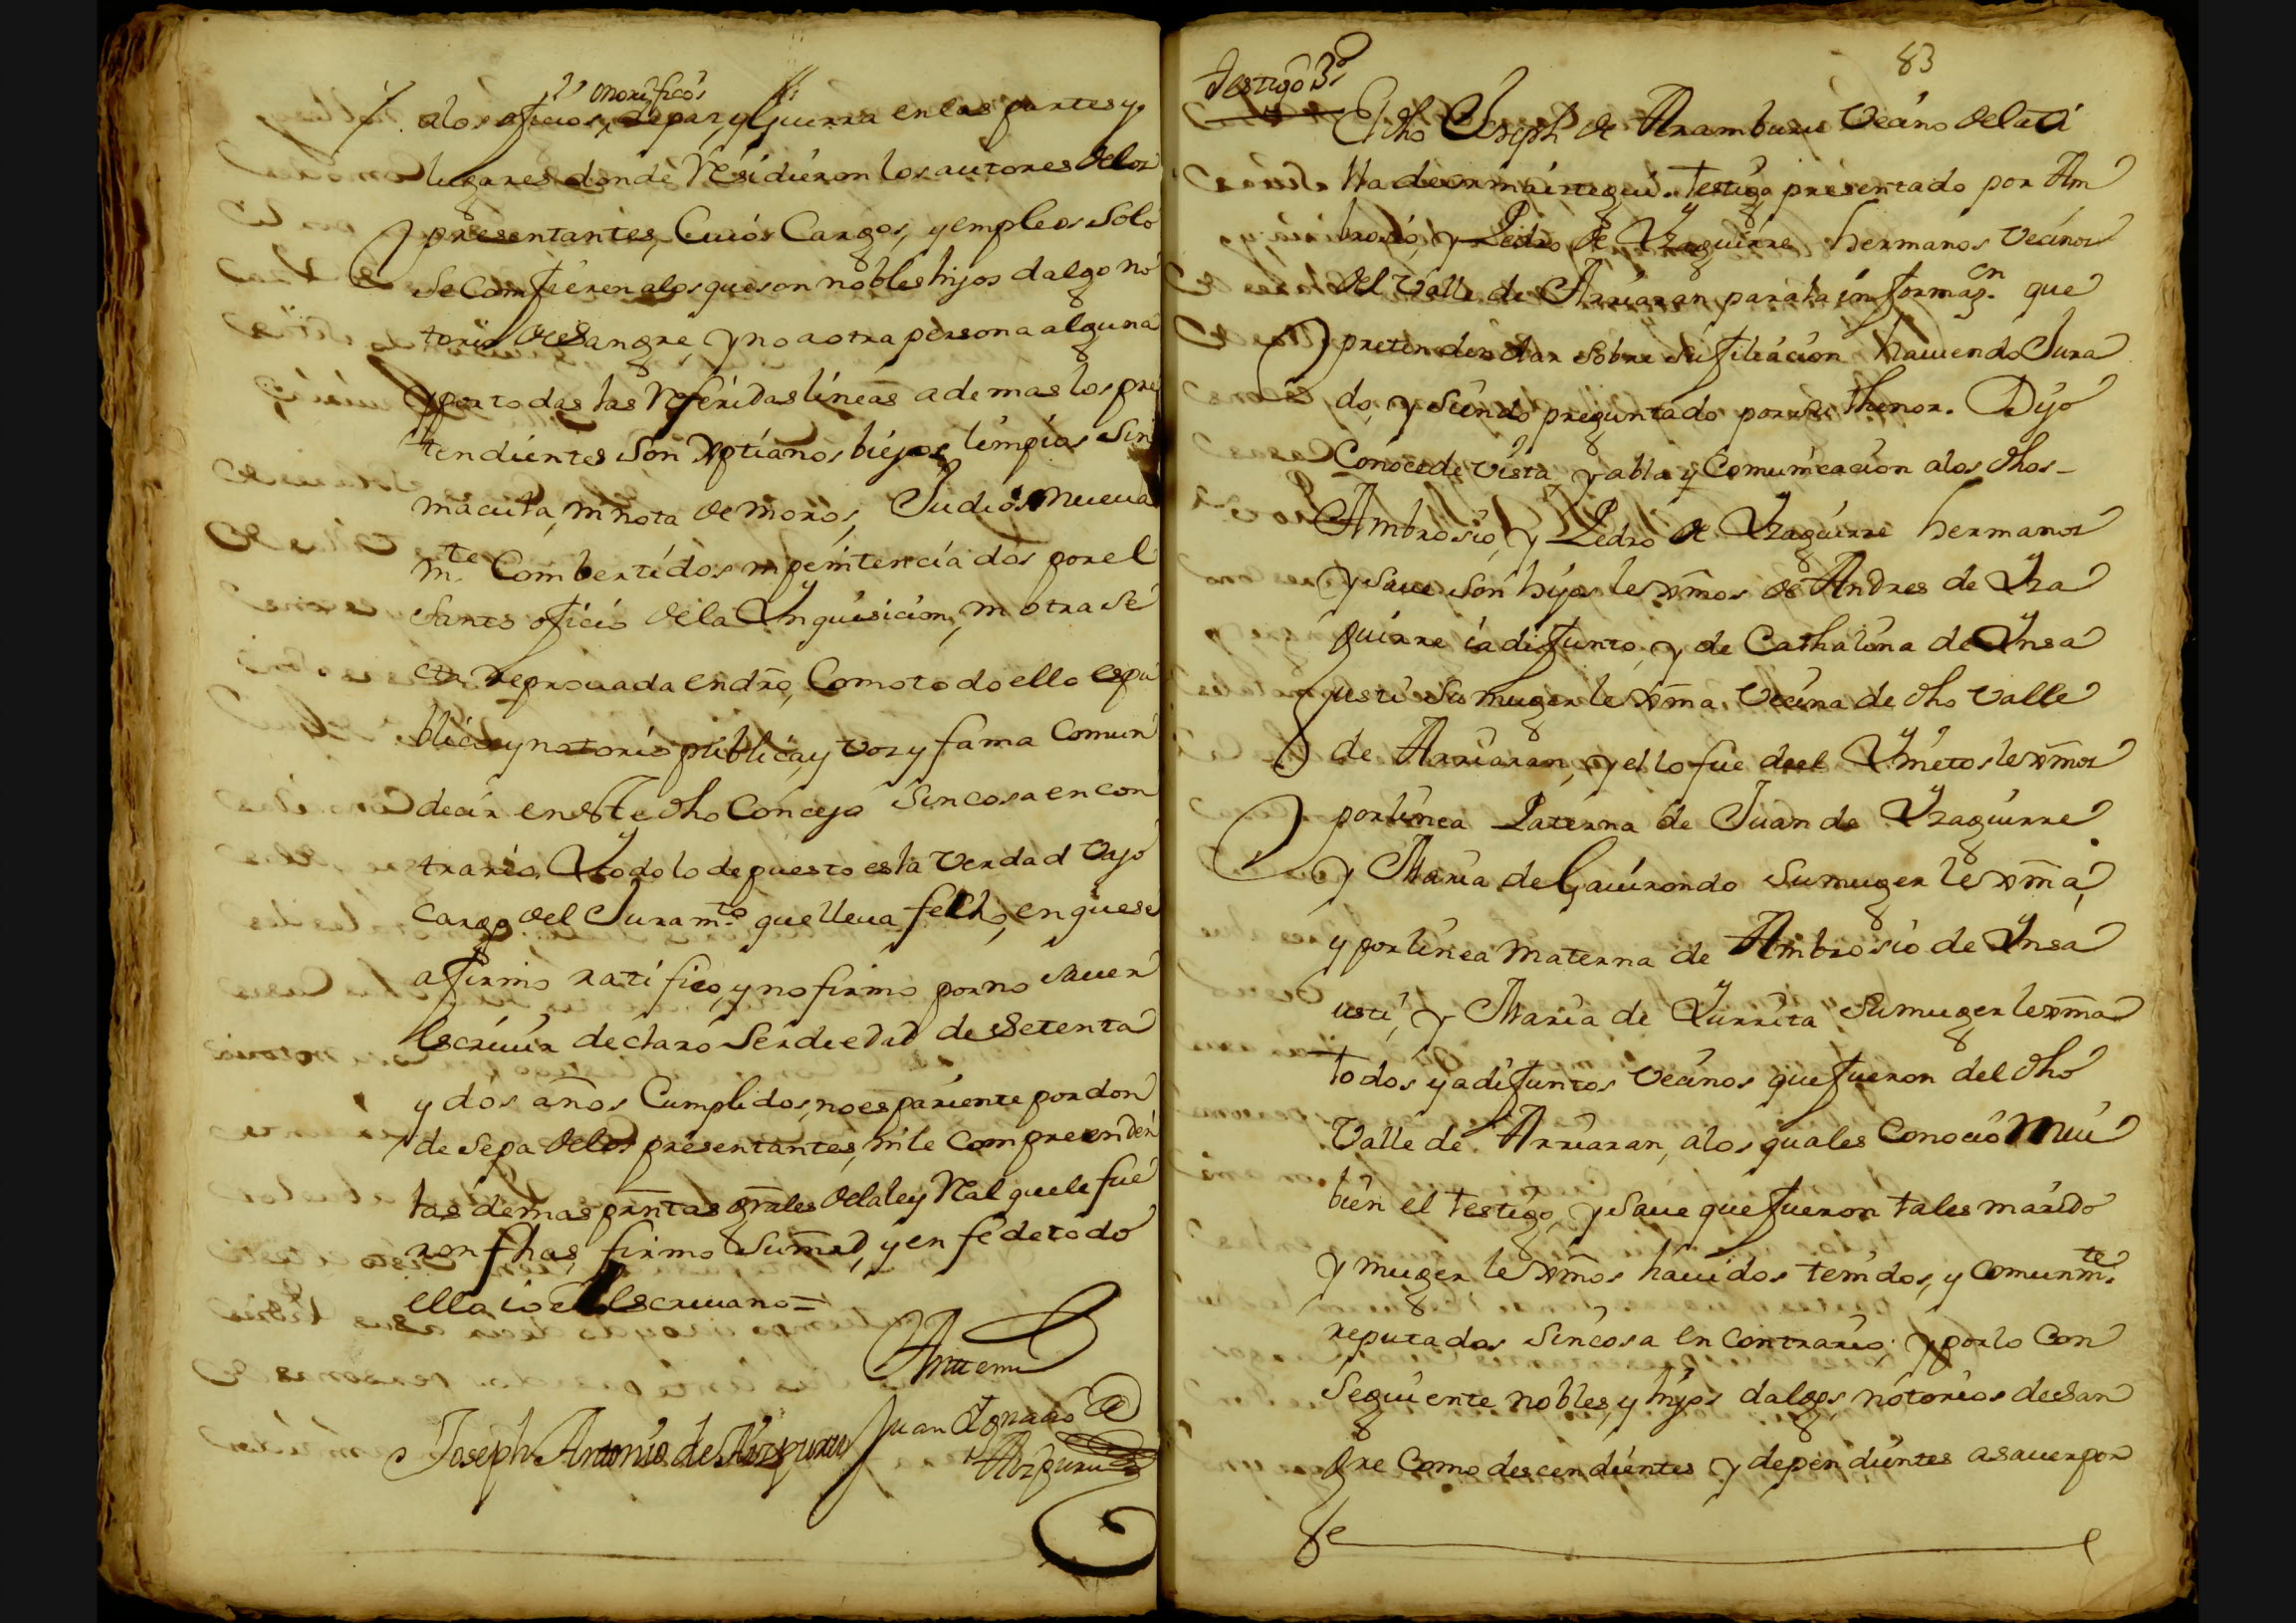 onorificos
alos oficios, de paz, y Guerra en las partes y
lugares donde Residieron los autores delos
presentantes, Cuios Cargos, y empleos Solo
Se Comfieren alos que son nobles hijos dalgo no
torios de Sangre, y no a otra persona alguna
y por todas las Referidas lineas ademas los pre
tendientes Son Xptianos biejos limpios Sin
macula, ni nota de moros, Judios nueua
mte. Combertidos ni penitenciados por el
Santo oficio dela Ynquisicion, ni otra Se
cta reprouada en dro, Como todo ello es pu
blico y notorio publica, y voz y fama Comun
decir en este dho Concejo Sin cosa en con
trario. Y todo lo depuesto es la verdad vajo
cargo del Juramto. que lleua fecho, en que se
afirmo ratifico, y no firmo por no sauer
escriuir declaro Ser de edad de setenta
y dos años Cumplidos, no es pariente por don
de Sepa delos presentantes, ni le Comprenden
las demas prntas grales dela ley Real que le fue
ron fhas, firmo Su mrd, y en fe de todo
ello io el Escriuano=
Ante mi
Joseph Antonio de Aizpuru
Juan Ignacio de
Aizpuru
83
Testigo 3º
El dho Joseph de Aramburu Vecino dela Vi
lla de ormaiztegui. Testigo presentado por Am
brosio, y Pedro de Yzaguirre hermanos vecinos
del Valle de Arriaran para la informazn. que
pretenden dar Sobre Su filiacion hauiendo Jura
do, y Siendo preguntado por su thenor. Dijo
Conoce de vista, y abla y Comunicacion alos dhos
Ambrosio, y Pedro de Yzaguirre hermanos
y Saue Son hijos lexmos de Andres de Yza
guirre ia difunto, y de Cathalina de Ynsa
usti Su muger lexma Vecina de dho Valle
de Arriaran, y el lo fue de el Y nietos lexmos
por linea Paterna de Juan de Yzaguirre
y Maria de Gauirondo Su muger lexma,
y por linea materna de Ambrosio de Ynsa
usti, y Maria de Yurrita Su muger lexma
todos ya difuntos Vecinos que fueron del dho
Valle de Arriaran, alos quales Conocio mui
bien el testigo, y Saue que fueron tales marido
y muger lexmos hauidos tenidos, y comunmte.
reputados Sin cosa en Contrario; y por lo Con
Seguiente nobles, y hijos dalgos, notorios de San
gre Como descendientes y dependientes a sauer por